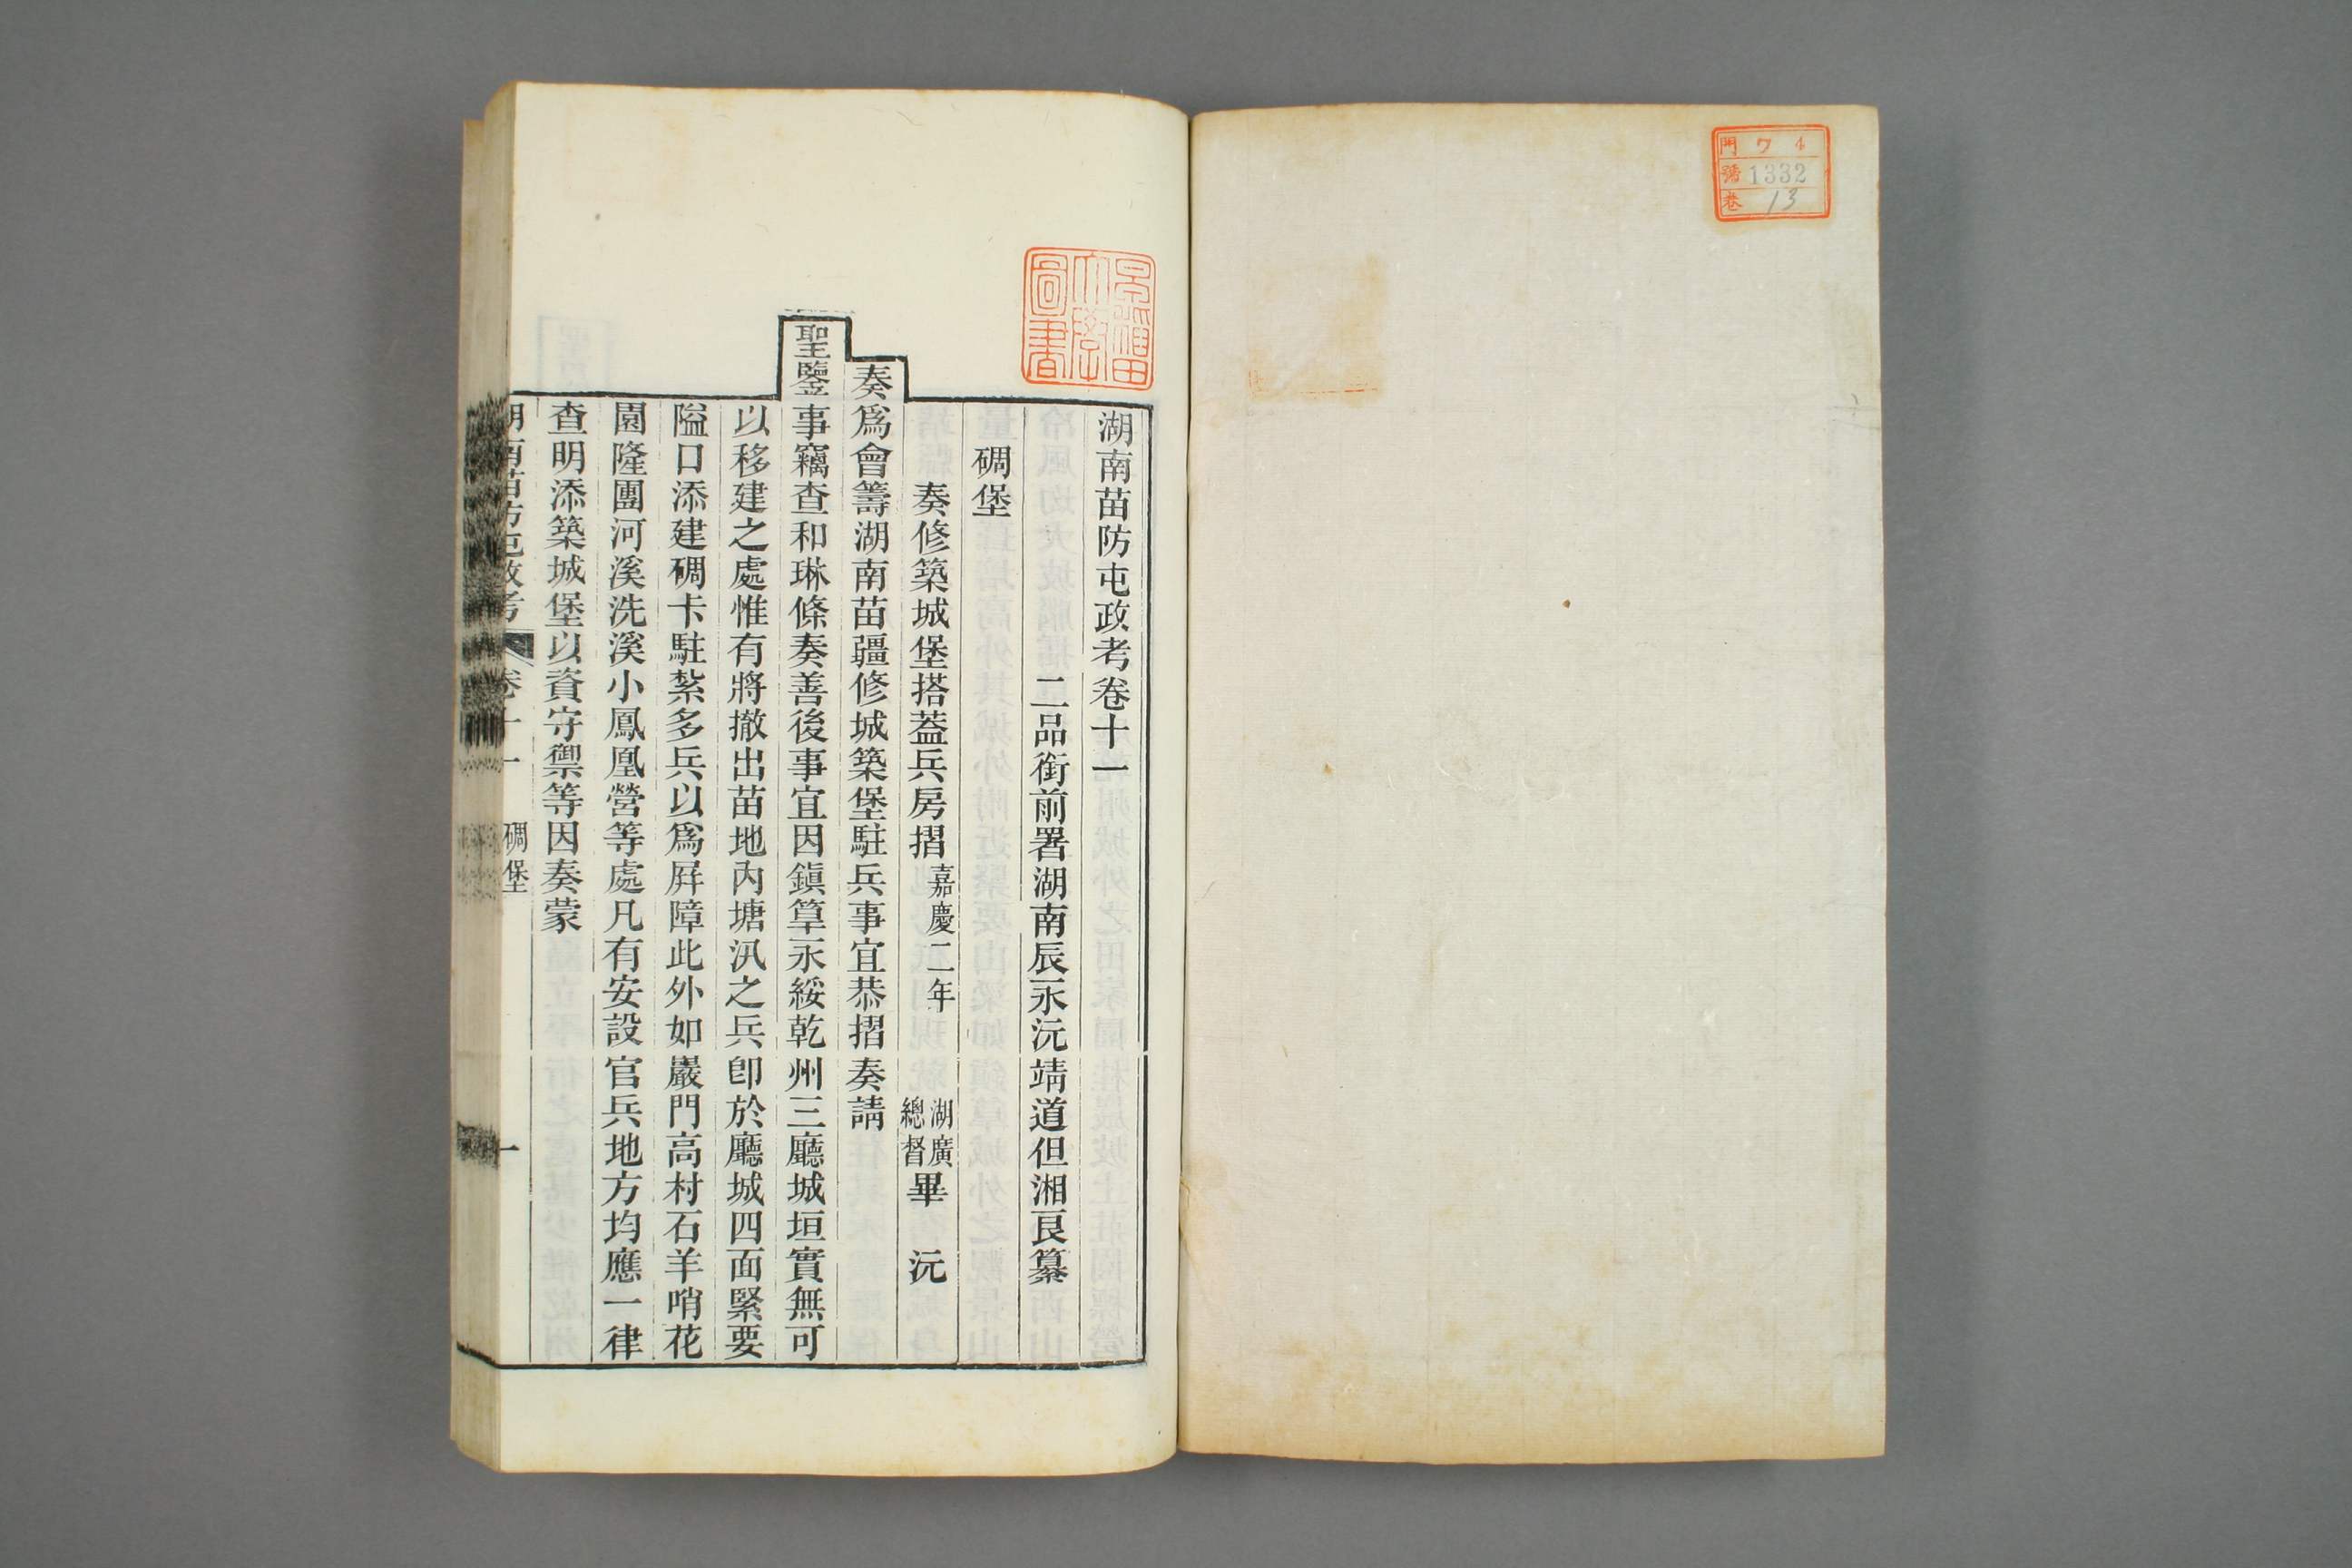 門 ワ 4
號 1332
卷 13
湖南苗防屯政考卷十一
二品銜前署湖南辰永沅靖道但湘良纂
碉堡
奏修築城堡搭蓋兵房摺 嘉慶二年 湖廣總督畢 沅
奏爲會籌湖南苗疆修城築堡駐兵事宜恭摺奏請
聖鑒事竊查和琳條奏善後事宜因鎭筸永綏乾州三廳城垣實無可
以移建之處惟有將撤出苗地內塘汛之兵卽於廳城四面緊要
隘口添建碉卡駐紮多兵以爲屏障此外如巖門高村石羊哨花
園隆團河溪洗溪小鳳凰營等處凡有安設官兵地方均應一律
查明添築城堡以資守禦等因奏蒙
湖南苗防屯政考 卷十一 碉堡 一